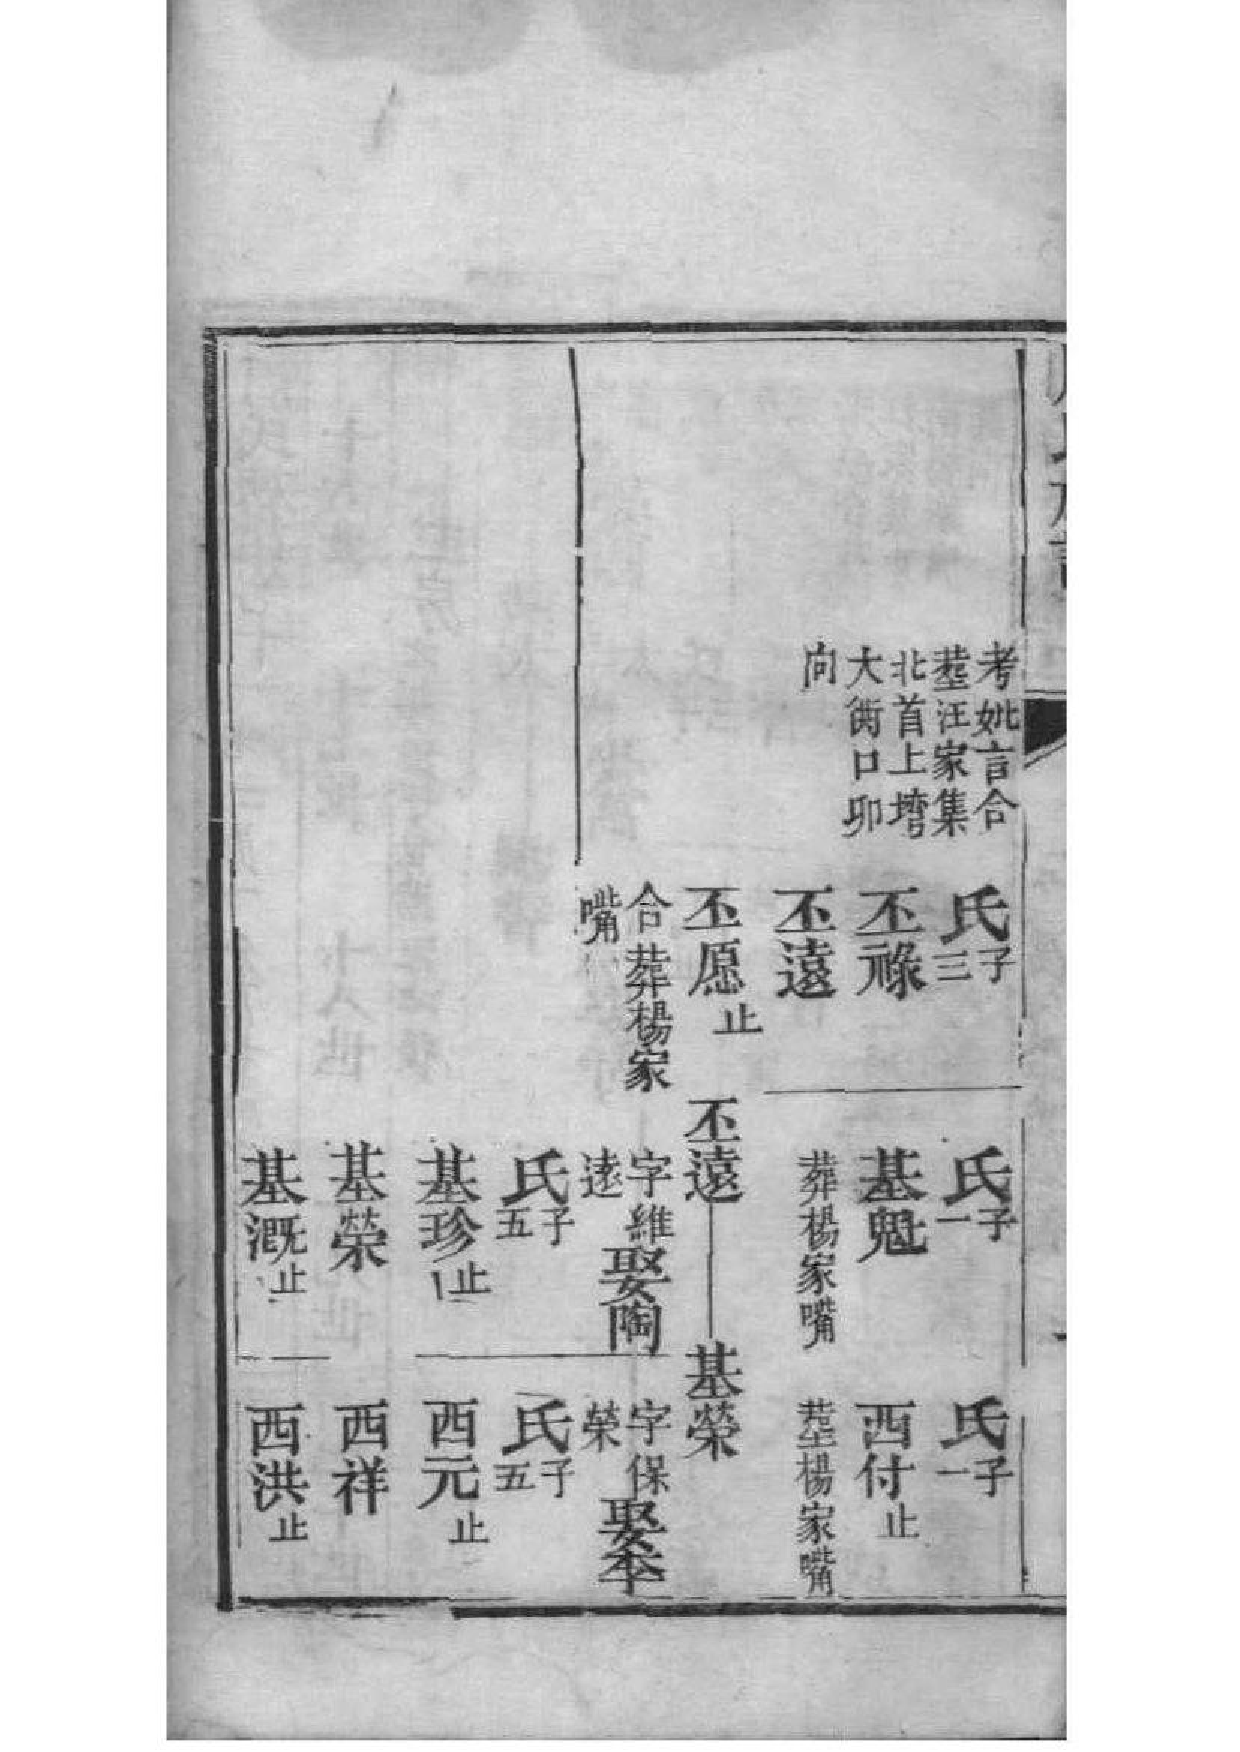 考妣言合
塟汪家集
北首上塆
大街口卯
向
氏子三
丕祿
丕遠
丕愿止
合葬楊家
嘴
氏子一
基魁
葬楊家嘴
丕遠
字維
逺
娶陶
氏子五
基珍止
基榮
基溉止
氏子一
西付止
塟楊家嘴
基榮
字保
榮
娶李
氏子五
西元止
西祥
西洪止